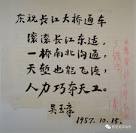 庆祝长江大桥通车
滚滚长江东逝，
一桥南北沟通，
天堑也能飞渡，
人力巧夺天工。
吴玉章
1957.10.15.